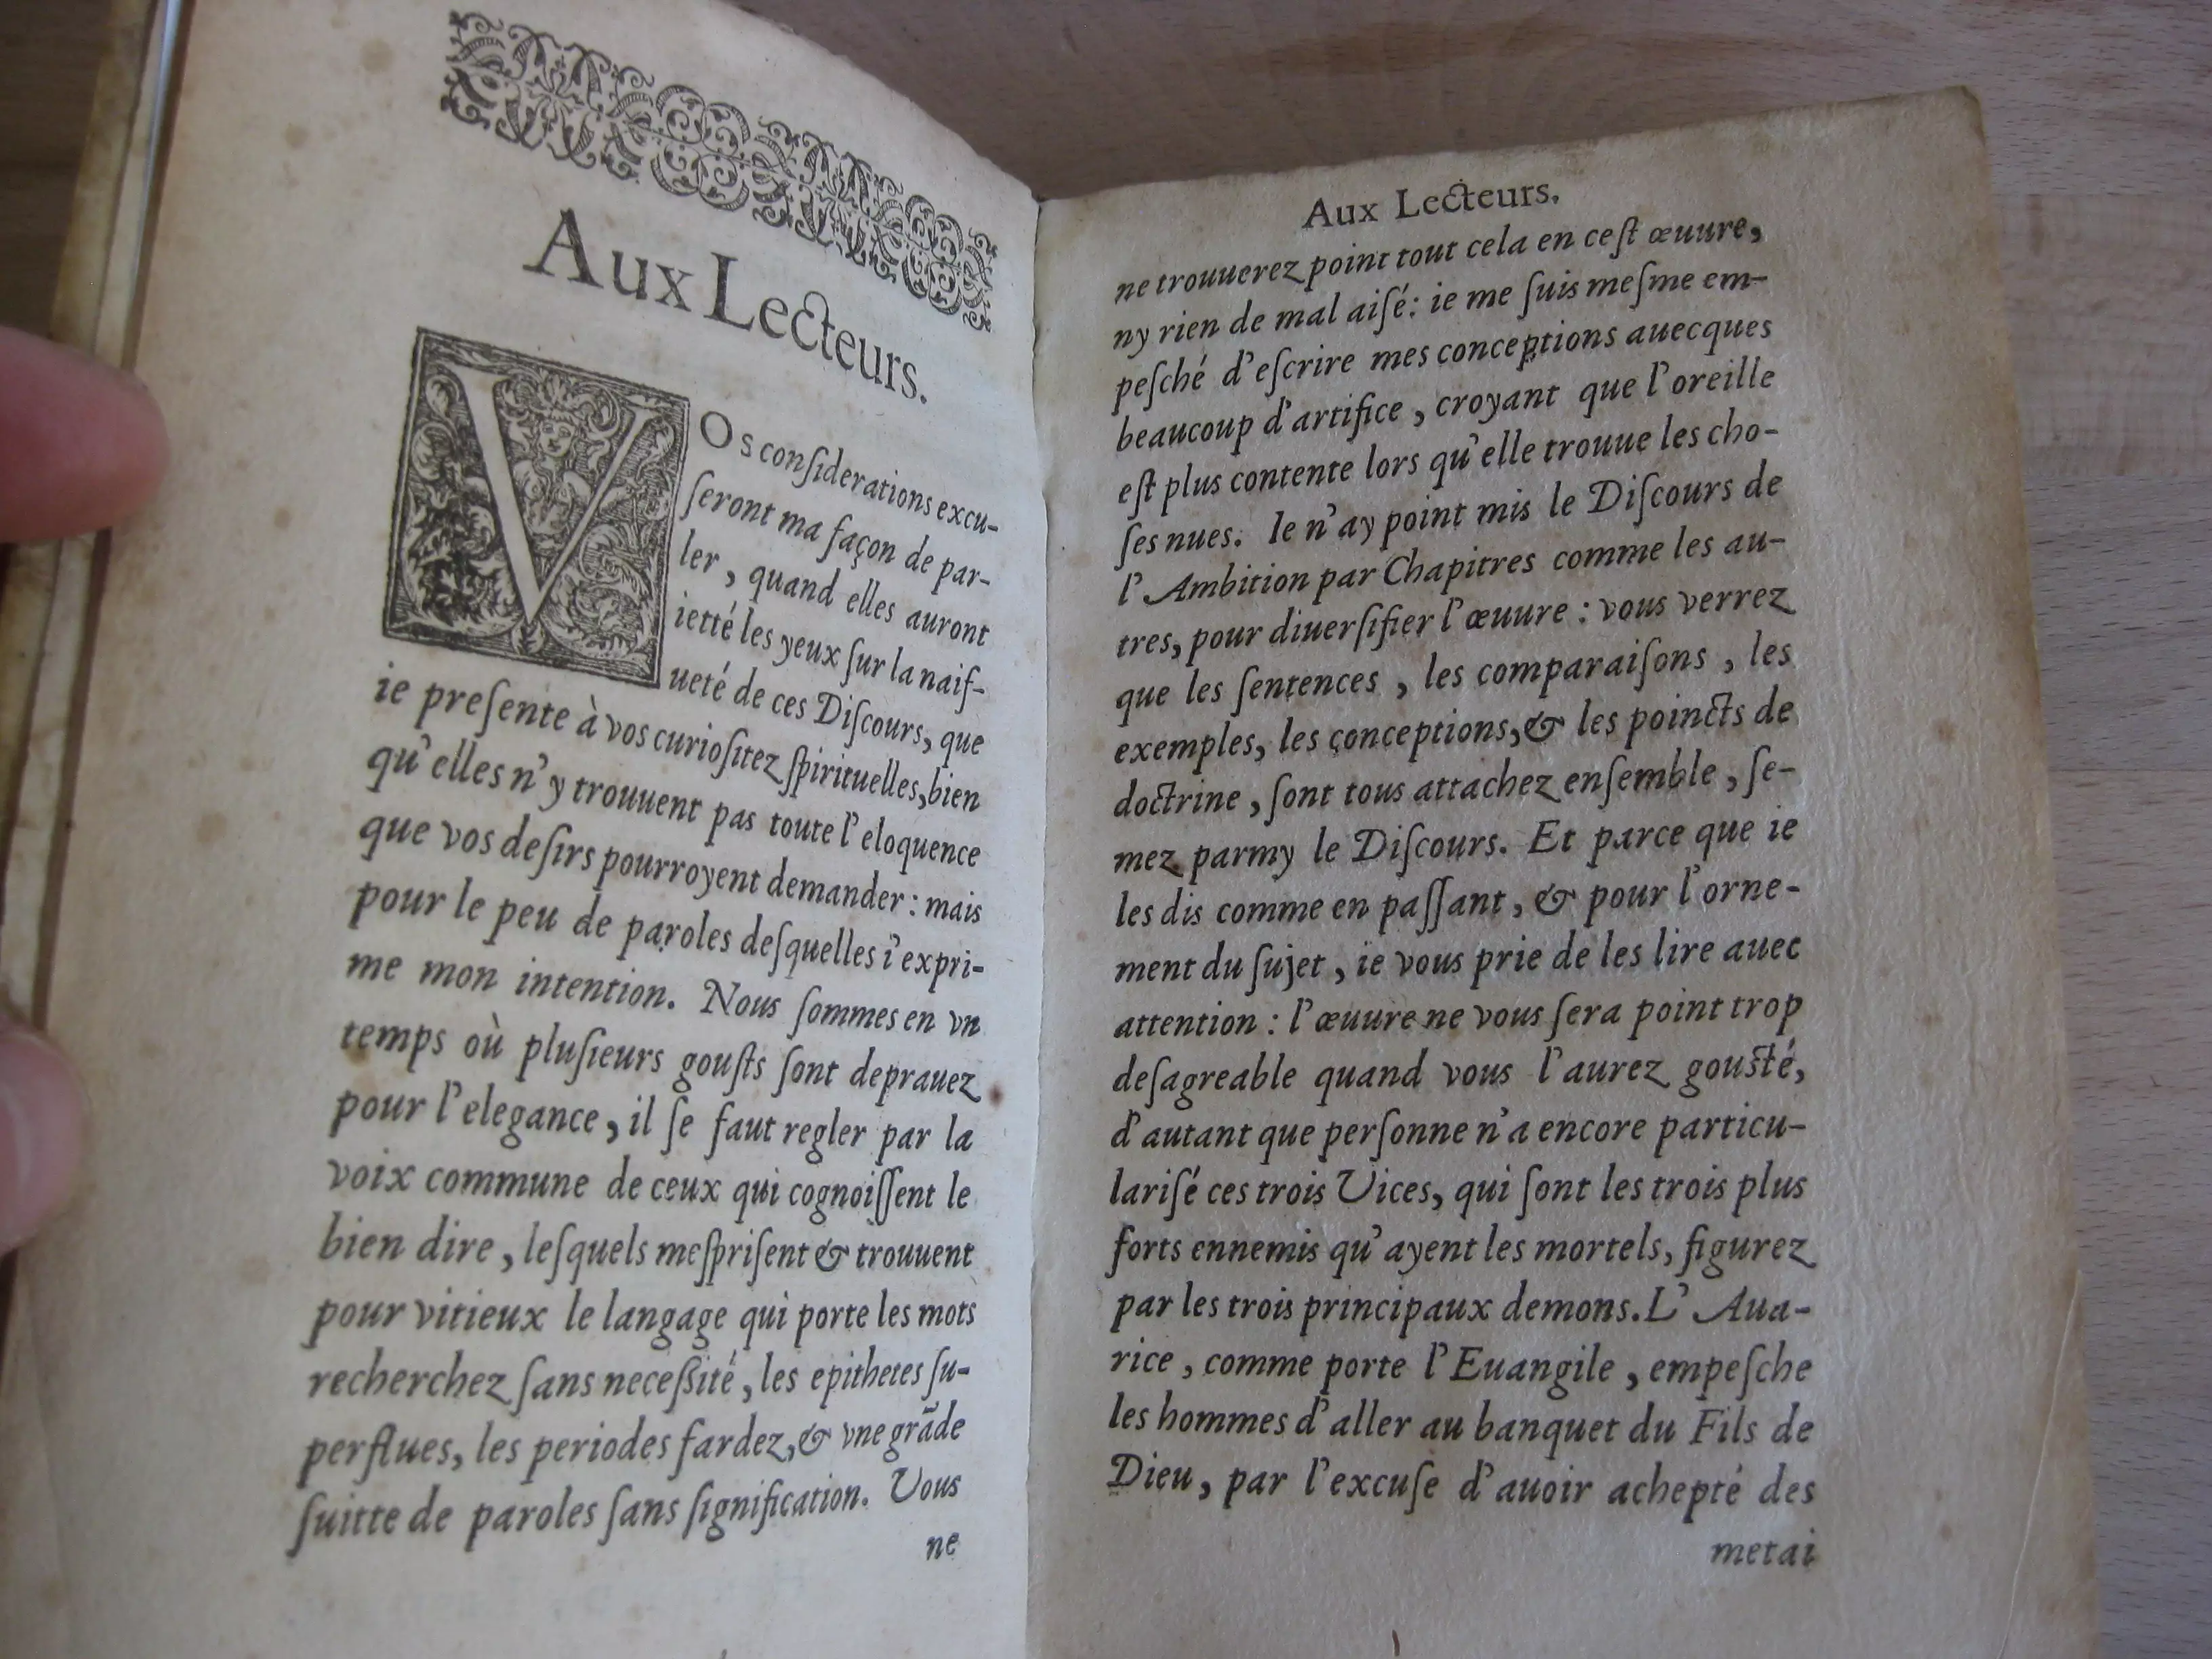 Aux Lecteurs.
VOs conſiderations excu-
ſeront ma façon de par-
ler, quand elles auront
ietté les yeux ſur la naif-
ueté de ces Diſcours, que
ie preſente à vos curioſitez ſpirituelles, bien
qu'elles n'y trouuent pas toute l'eloquence
que vos deſirs pourroyent demander: mais
pour le peu de paroles deſquelles i'expri-
me mon intention. Nous ſommes en vn
temps où pluſieurs gouſts ſont deprauez
pour l'elegance, il ſe faut regler par la
voix commune de ceux qui cognoiſſent le
bien dire, leſquels meſpriſent & trouuent
pour vitieux le langage qui porte les mots
recherchez ſans neceſſité, les epithetes ſu-
perflues, les periodes fardez, & vne grãde
ſuitte de paroles ſans ſignification. Vous
ne
Aux Lecteurs.
ne trouuerez point tout cela en ceſt œuure,
ny rien de mal aiſé: ie me ſuis meſme em-
peſché d'eſcrire mes conceptions auecques
beaucoup d'artifice, croyant que l'oreille
eſt plus contente lors qu'elle trouue les cho-
ſes nues. Ie n'ay point mis le Diſcours de
l'Ambition par Chapitres comme les au-
tres, pour diuerſifier l'œuure: vous verrez
que les ſentences, les comparaiſons, les
exemples, les conceptions, & les poincts de
doctrine, ſont tous attachez enſemble, ſe-
mez parmy le Diſcours. Et parce que ie
les dis comme en paſſant, & pour l'orne-
ment du ſujet, ie vous prie de les lire auec
attention: l'œuure ne vous ſera point trop
deſagreable quand vous l'aurez gouſté,
d'autant que perſonne n'a encore particu-
lariſé ces trois Vices, qui ſont les trois plus
forts ennemis qu'ayent les mortels, figurez
par les trois principaux demons. L'Aua-
rice, comme porte l'Euangile, empeſche
les hommes d'aller au banquet du Fils de
Dieu, par l'excuſe d'auoir achepté des
metai